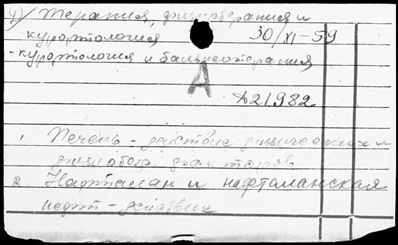 4) Терапия, физиотерапия и
курортология 30/XI-59
- курортология и бальнеотерапия
А
Д21982
1. Печень - действие физических и
факторов
2. Нафталан и нафталанская
нефть - действие